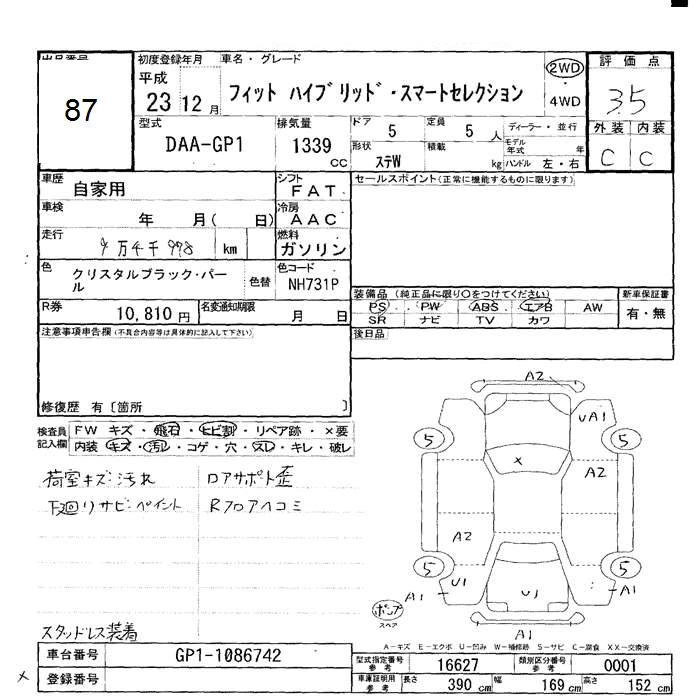 出品番号
87
初度登録年月
平成
23 12 月
車名・グレード
フィット ハイブリッド・スマートセレクション
2WD
4WD
評価点
3.5
外装 内装
C C
型式
DAA-GP1
排気量
1339
CC
ドア
5
定員
5 人
ディーラー・並行
形状
ステW
積載
kg
モデル年式
年
ハンドル 左・右
車歴
自家用
シフト
FAT
車検
年 月( 日)
冷房
AAC
走行
万4千998 km
燃料
ガソリン
色
クリスタルブラック・パール
色替
色コード
NH731P
R券
10,810 円
名変通知期限
月 日
セールスポイント(正常に機能するものに限ります)
装備品 (純正品に限り○をつけてください)
PS PW ABS エアB AW
SR ナビ TV カワ
新車保証書
有・無
後日品
注意事項申告欄(不具合内容等は具体的に記入して下さい)
修復歴 有〔箇所 〕
検査員記入欄
FW キズ・飛石・ヒビ割・リペア跡・×要
内装 キズ・汚れ・コゲ・穴・スレ・キレ・破レ
荷室キズ・汚れ ロアサポト歪
下廻りサビ・ペイント Rフロアヘコミ
スタッドレス装着
A2
UA1
5
5
×
A2
A2
5
5
U1
U1
A1
A1
A1
ポンプ
スペア
A-キズ E-エクボ U-凹み W-補修跡 S-サビ C-腐食 XX-交換済
車台番号
GP1-1086742
× 登録番号
型式指定番号 参考
16627
類別区分番号 参考
0001
車庫証明用 参考
長さ 390 cm
幅 169 cm
高さ 152 cm